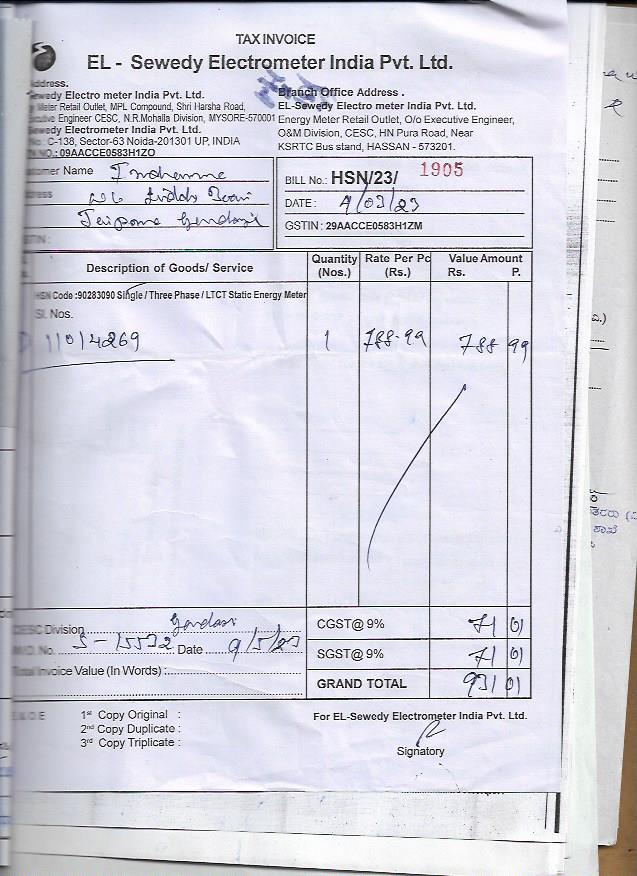 TAX INVOICE
EL - Sewedy Electrometer India Pvt. Ltd.
Address.
Sewedy Electro meter India Pvt. Ltd.
Meter Retail Outlet, MPL Compound, Shri Harsha Road,
Executive Engineer CESC, N.R.Mohalla Division, MYSORE-570001
Sewedy Electrometer India Pvt. Ltd.
No: C-138, Sector-63 Noida-201301 UP, INDIA
NO.: 09AACCE0583H1ZO
Branch Office Address .
EL-Sewedy Electro meter India Pvt. Ltd.
Energy Meter Retail Outlet, O/o Executive Engineer,
O&M Division, CESC, HN Pura Road, Near
KSRTC Bus stand, HASSAN - 573201.
Customer Name
Address
GSTIN :
BILL No.: HSN/23/ 1905
DATE : /03/23
GSTIN : 29AACCE0583H1ZM
Description of Goods/ Service Quantity (Nos.) Rate Per Pc (Rs.) Value Amount Rs. P.
HSN Code :90283090 Single / Three Phase / LTCT Static Energy Meter
Sl. Nos.
11014269 1 788-99 788 99
CESC Division
S-15532 Date 9/5/23
Total Invoice Value (In Words) :
CGST@ 9% 71 01
SGST@ 9% 71 01
GRAND TOTAL 931 01
E & O E
1st Copy Original :
2nd Copy Duplicate :
3rd Copy Triplicate :
For EL-Sewedy Electrometer India Pvt. Ltd.
Signatory